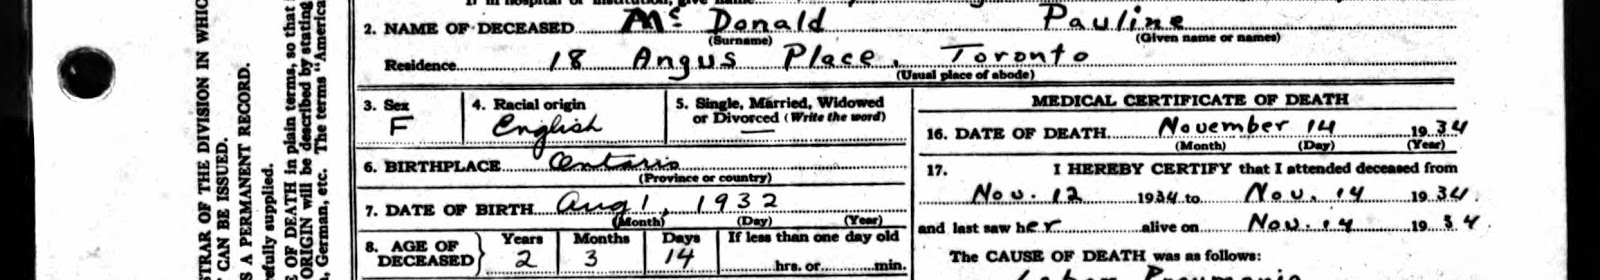 2. NAME OF DECEASED Mc Donald Pauline
(Surname) (Given name or names)
Residence 18 Angus Place, Toronto
(Usual place of abode)
3. Sex F
4. Racial origin English
5. Single, Married, Widowed or Divorced (Write the word) —
6. BIRTHPLACE Ontario
(Province or country)
7. DATE OF BIRTH Aug 1, 1932
(Month) (Day) (Year)
8. AGE OF DECEASED
Years Months Days If less than one day old
2 3 14 hrs. or min.
MEDICAL CERTIFICATE OF DEATH
16. DATE OF DEATH November 14 1934
(Month) (Day) (Year)
17. I HEREBY CERTIFY that I attended deceased from
Nov. 12 1934 to Nov. 14 1934
and last saw her alive on Nov. 14 1934
The CAUSE OF DEATH was as follows:
Pneumonia
STRAR OF THE DIVISION IN WHIC
CAN BE ISSUED.
A PERMANENT RECORD.
efully supplied.
E OF DEATH in plain terms, so that
ORIGIN will be described by stating
German, etc. The terms "America